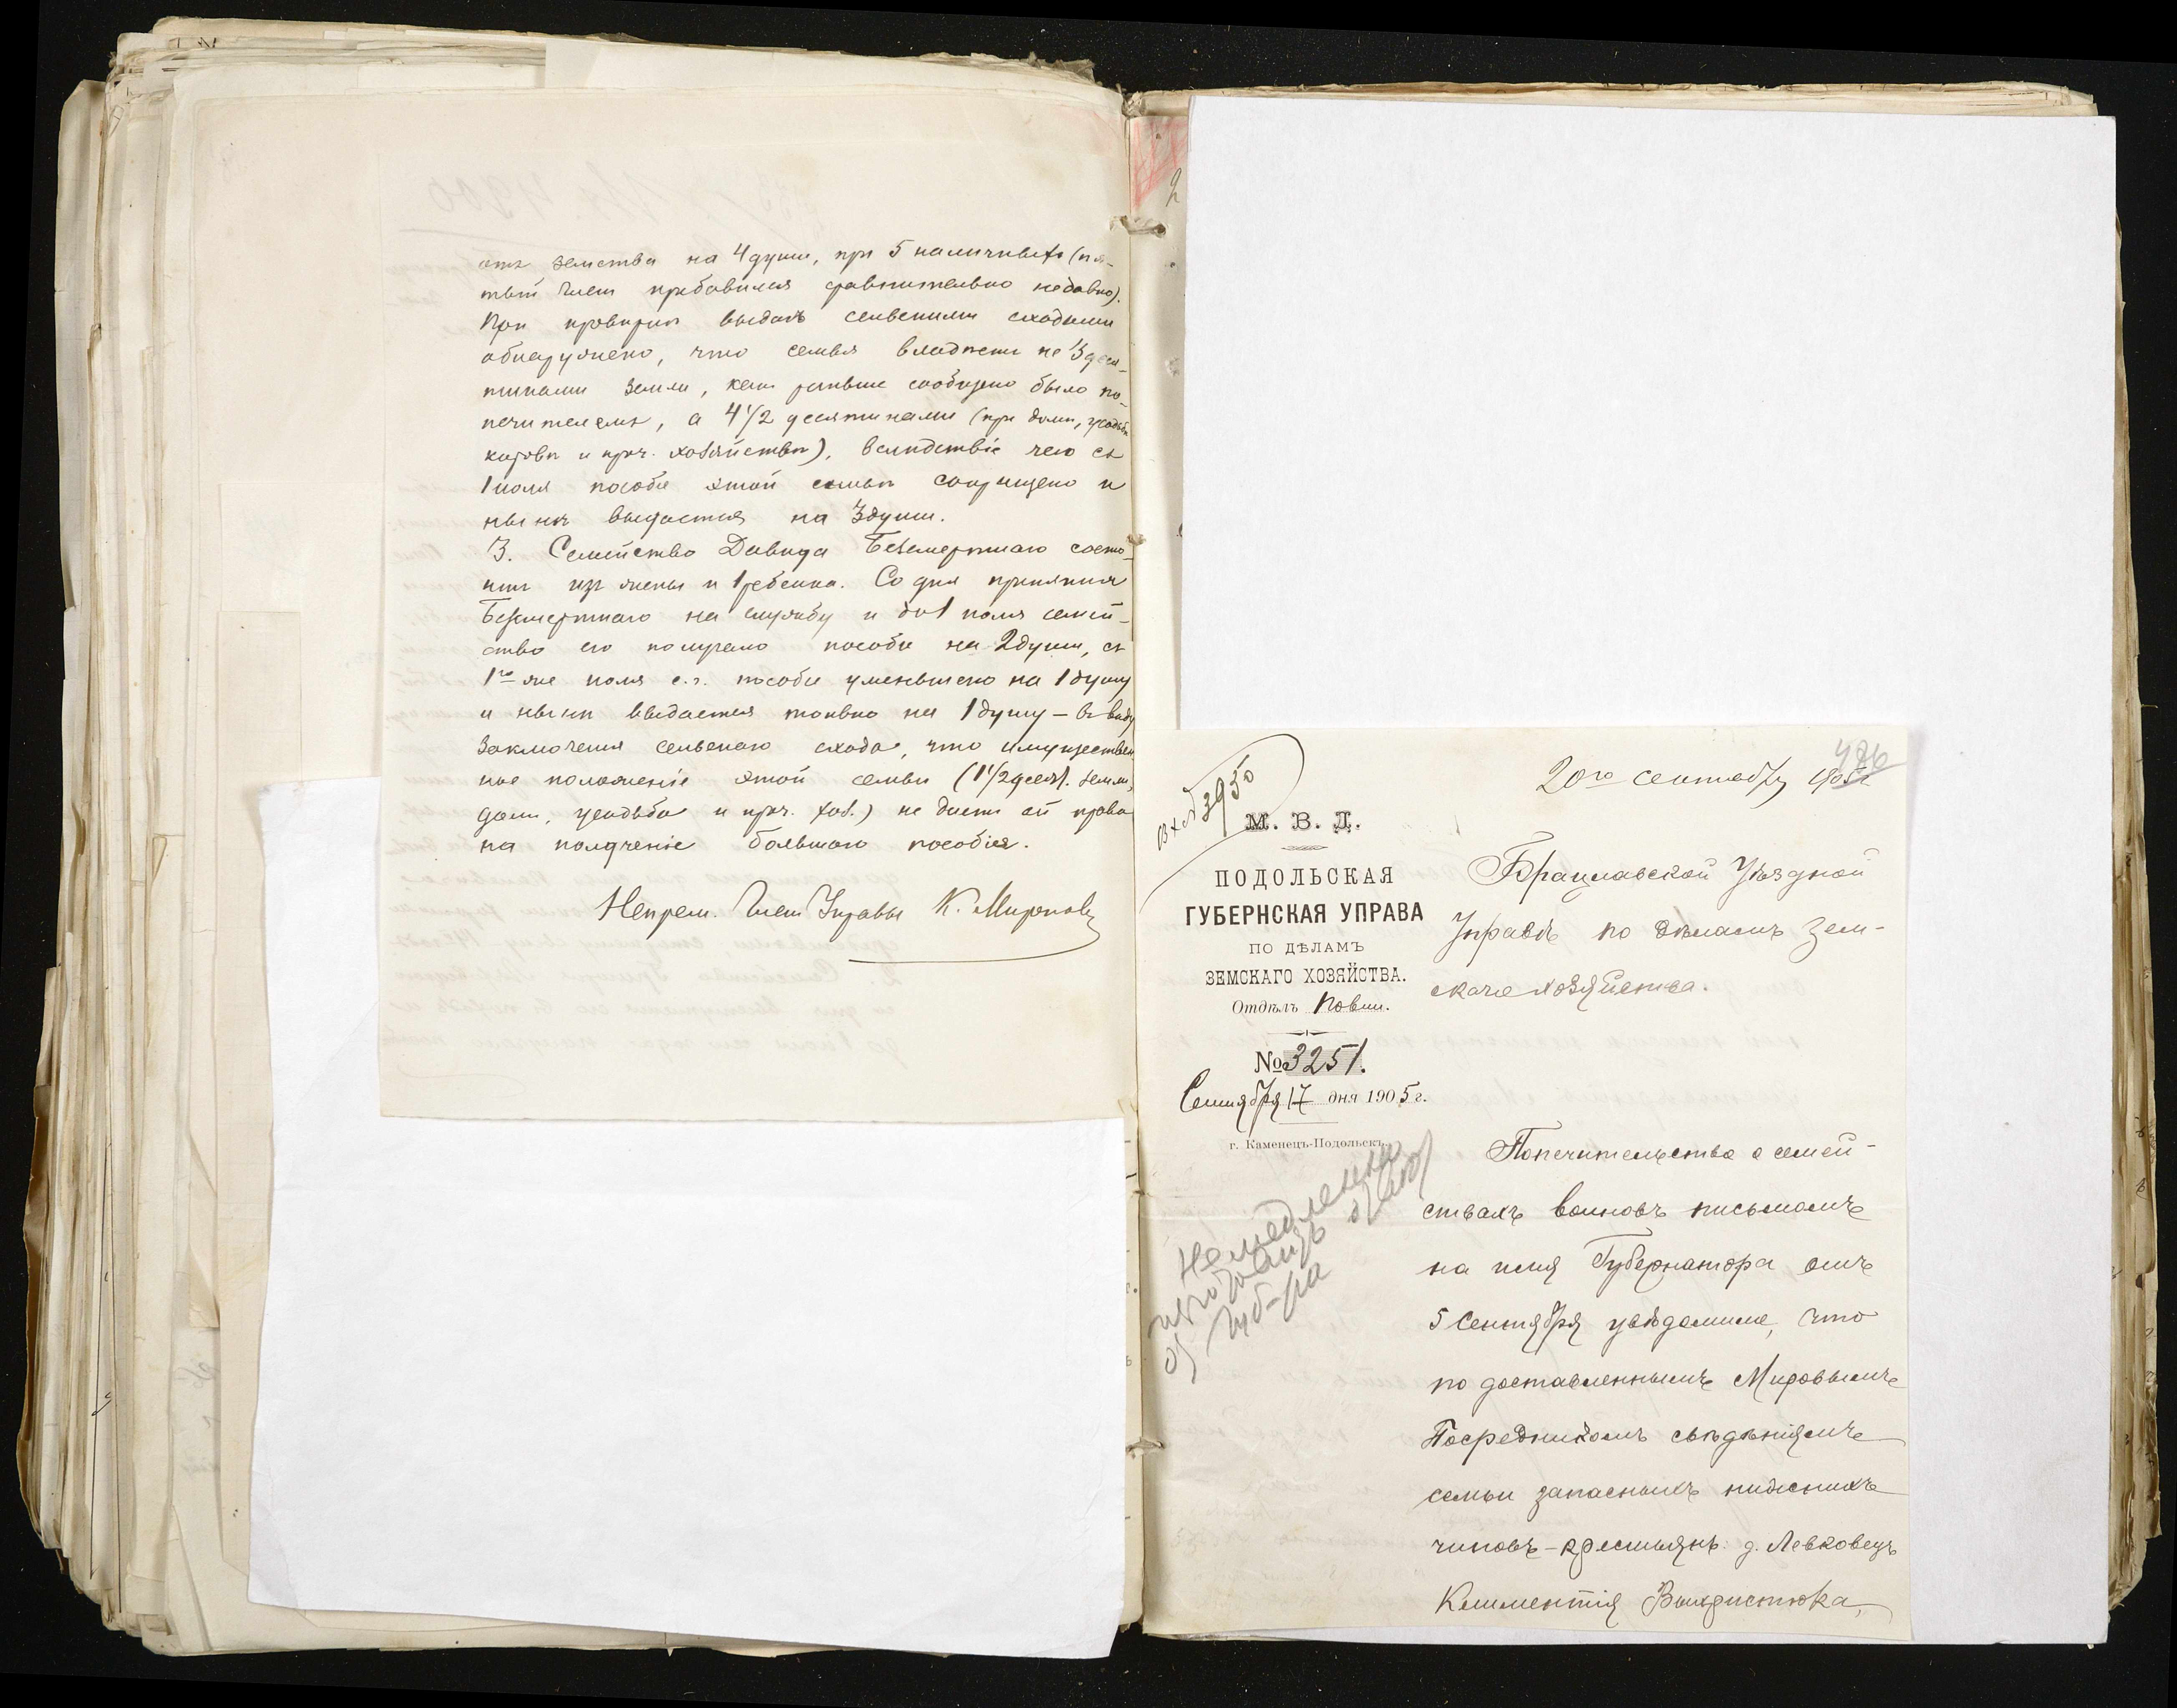 отъ земства на 4 души, при 5 наличныхъ (пя-
тый членъ прибавился сравнительно недавно).
При провѣркѣ выдачъ сельскими сходами
обнаружено, что семья владѣетъ не 3 деся-
тинами земли, какъ раньше сообщено было по-
печителемъ, а 4 1/2 десятинами (при домѣ, усадьбѣ
коровѣ и проч. хозяйствѣ), вслѣдствіе чего съ
1 іюля пособіе этой семьѣ сокращено и
нынѣ выдается на 3 души.
3. Семейство Давида Безсмертнаго состо-
итъ изъ жены и 1 ребенка. Со дня принятія
Безсмертнаго на службу и до 1 іюля семей-
ство его получало пособіе на 2 души, съ
1го же іюля с.г. пособіе уменьшено на 1 душу
и нынѣ выдается только на 1 душу – въ виду
заключенія сельскаго схода, что имуществен
ное положеніе этой семьи (1 1/2 десят. земли,
домъ, усадьба и проч. хоз.) не даетъ ей права
на полученіе большаго пособія.
Непрем. Членъ Управы К. Мироновъ
486
20го сентября 1905г
Вход 3950
М. В. Д.
ПОДОЛЬСКАЯ
ГУБЕРНСКАЯ УПРАВА
ПО ДѢЛАМЪ
ЗЕМСКАГО ХОЗЯЙСТВА.
Отдѣлъ Повин.
№ 3251.
Сентября 17 дня 1905 г.
г. Каменецъ-Подольскъ.
Брацлавской Уѣздной
Управѣ по дѣламъ Зем-
скаго хозяйства.
Немедленно
Губ-ра
Попечительство о семей-
ствахъ воиновъ письмомъ
на имя Губернатора отъ
5 Сентября увѣдомило, что
по доставленнымъ Мировымъ
Посредникомъ свѣдѣніямъ
семьи запасныхъ нижнихъ
чиновъ – крестьянъ: д. Левковецъ
Климентія Вихристюка,